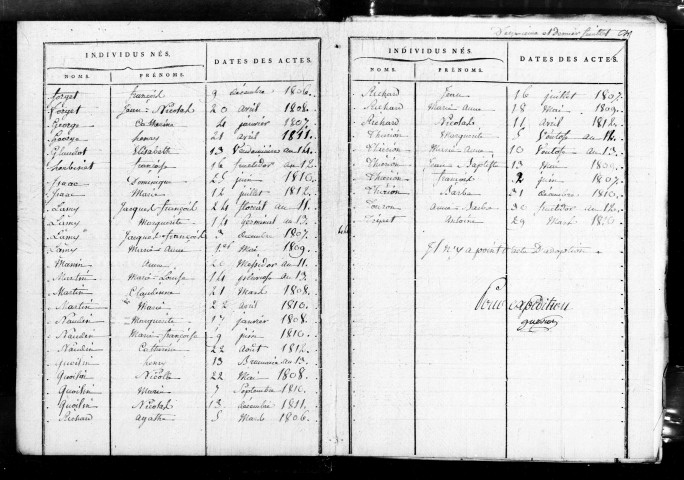 INDIVIDUS NÉS. DATES DES ACTES.
NOMS. PRÉNOMS.
Forget françois 9 décembre 1806.
Forget Jean Nicolas 20 avril 1808.
George Catherine 4 janvier 1807.
George henry 21 avril 1811.
Elisabeth 13 Vendemiaire an 14.
françoise 16 fructidor an 12
Isaac Dominique 25 juin 1810.
Isaac Marie 12 juillet 1812.
Lamy Jacques françois 24 floréal an 11.
Lamy Marguerite 14 Germinal an 13.
Lamy Jacques françois 3 Decembre 1807.
Lamy Marie Anne 1er Mai 1809.
Anne 20 Messidor an 11.
Martin Marie Louise 14 pluviose an 13.
Martin 21 Mars 1808.
Martin Marie 22 avril 1810.
Naudin Marguerite 17 janvier 1808.
Naudin Marie françoise 9 juin 1810.
Naudin Catherine 22 Août 1812.
Quoilin henry 13 Brumaire an 13.
Quoilin Nicolle 22 Mai 1808.
Quoilin Marie 7 Septembre 1810.
Quoilin Nicolas 13 decembre 1811.
Richard agathe 5 Mars 1806.
et dernier feuillet
INDIVIDUS NÉS. DATES DES ACTES.
NOMS. PRÉNOMS.
Richard 16 juillet 1807.
Richard Marie Anne 18 Mai 1809.
Richard Nicolas 11 avril 1812.
Thirion Marguerite 5 Ventose an 11.
Thirion Marie Anne 10 Ventose an 13.
Thirion Jean Baptiste 13 Mai
Thirion françois 2 juin 1807.
Thirion Barbe 31 decembre 1810.
Anne Barbe 30 fructidor an 12.
Antoine 29 Mars
Il n'y a point d'acte D'adoption.
Pour expédition